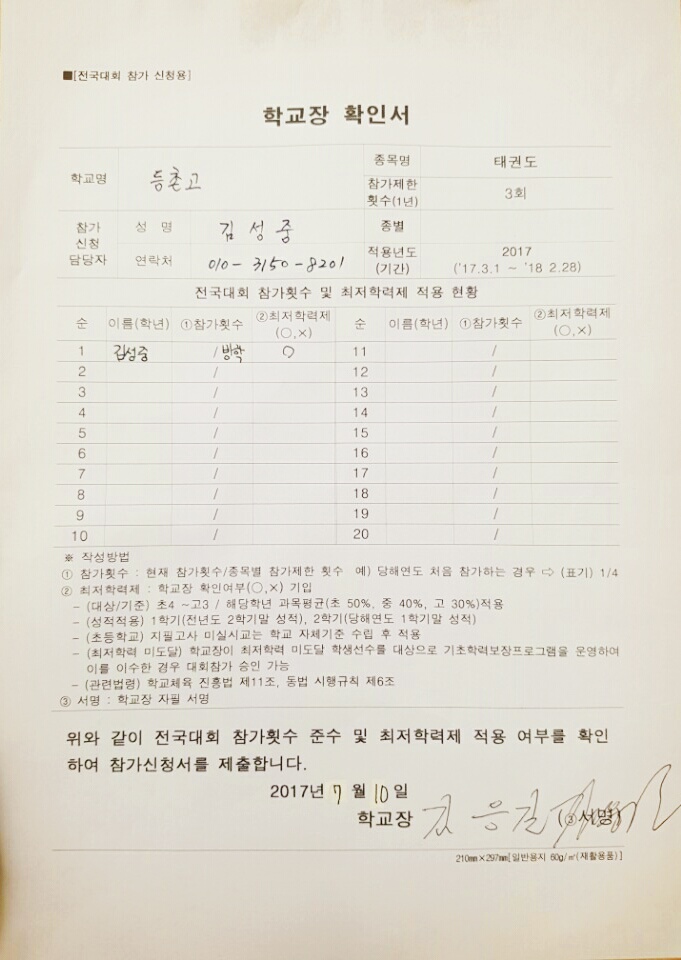 ■[전국대회 참가 신청용]
학교장 확인서
학교명 등촌고 종목명 태권도
참가제한 횟수(1년) 3회
참가 신청 담당자 성 명 김성중 종별
연락처 010-3150-8201 적용년도 (기간) 2017 ('17.3.1 ~ '18 2.28)
전국대회 참가횟수 및 최저학력제 적용 현황
순 이름(학년) ①참가횟수 ②최저학력제 (○,×) 순 이름(학년) ①참가횟수 ②최저학력제 (○,×)
1 김성중 / 방학 ○ 11 /
2 / 12 /
3 / 13 /
4 / 14 /
5 / 15 /
6 / 16 /
7 / 17 /
8 / 18 /
9 / 19 /
10 / 20 /
※ 작성방법
① 참가횟수 : 현재 참가횟수/종목별 참가제한 횟수 예) 당해연도 처음 참가하는 경우 ⇨ (표기) 1/4
② 최저학력제 : 학교장 확인여부(○,×) 기입
- (대상/기준) 초4 ~고3 / 해당학년 과목평균(초 50%, 중 40%, 고 30%)적용
- (성적적용) 1학기(전년도 2학기말 성적), 2학기(당해연도 1학기말 성적)
- (초등학교) 지필고사 미실시교는 학교 자체기준 수립 후 적용
- (최저학력 미도달) 학교장이 최저학력 미도달 학생선수를 대상으로 기초학력보장프로그램을 운영하여
이를 이수한 경우 대회참가 승인 가능
- (관련법령) 학교체육 진흥법 제11조, 동법 시행규칙 제6조
③ 서명 : 학교장 자필 서명
위와 같이 전국대회 참가횟수 준수 및 최저학력제 적용 여부를 확인
하여 참가신청서를 제출합니다.
2017년 7 월 10 일
학교장 (③서명)
210mm×297mm[일반용지 60g/㎡(재활용품)]